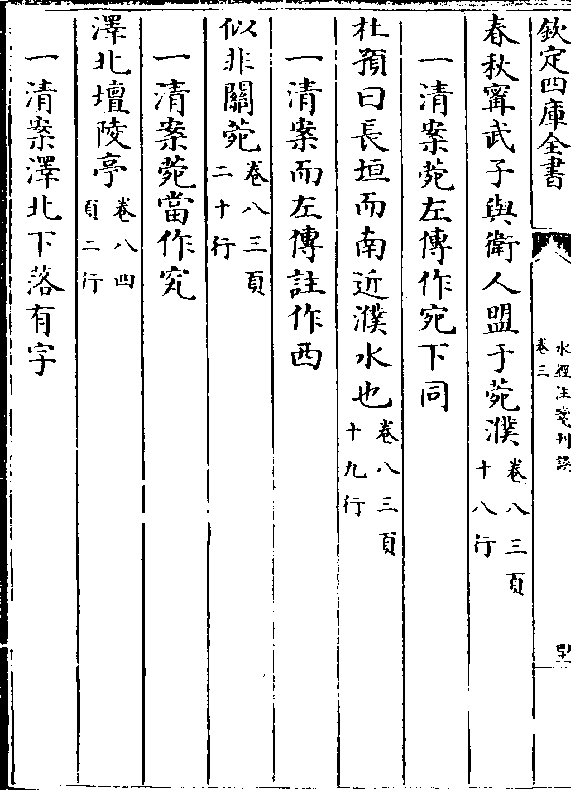 欽定四庫全書
水經注箋刊誤
卷三
春秋甯武子與衛人盟于菀濮
卷八三頁
十八行
一清案菀左傳作宛下同
杜預曰長垣而南近濮水也
卷八三頁
十九行
一清案而左傳註作西
似非關菀
卷八三頁
二十行
一清案菀當作究
澤北壇陵亭
卷八四
頁二行
一清案澤北下落有字